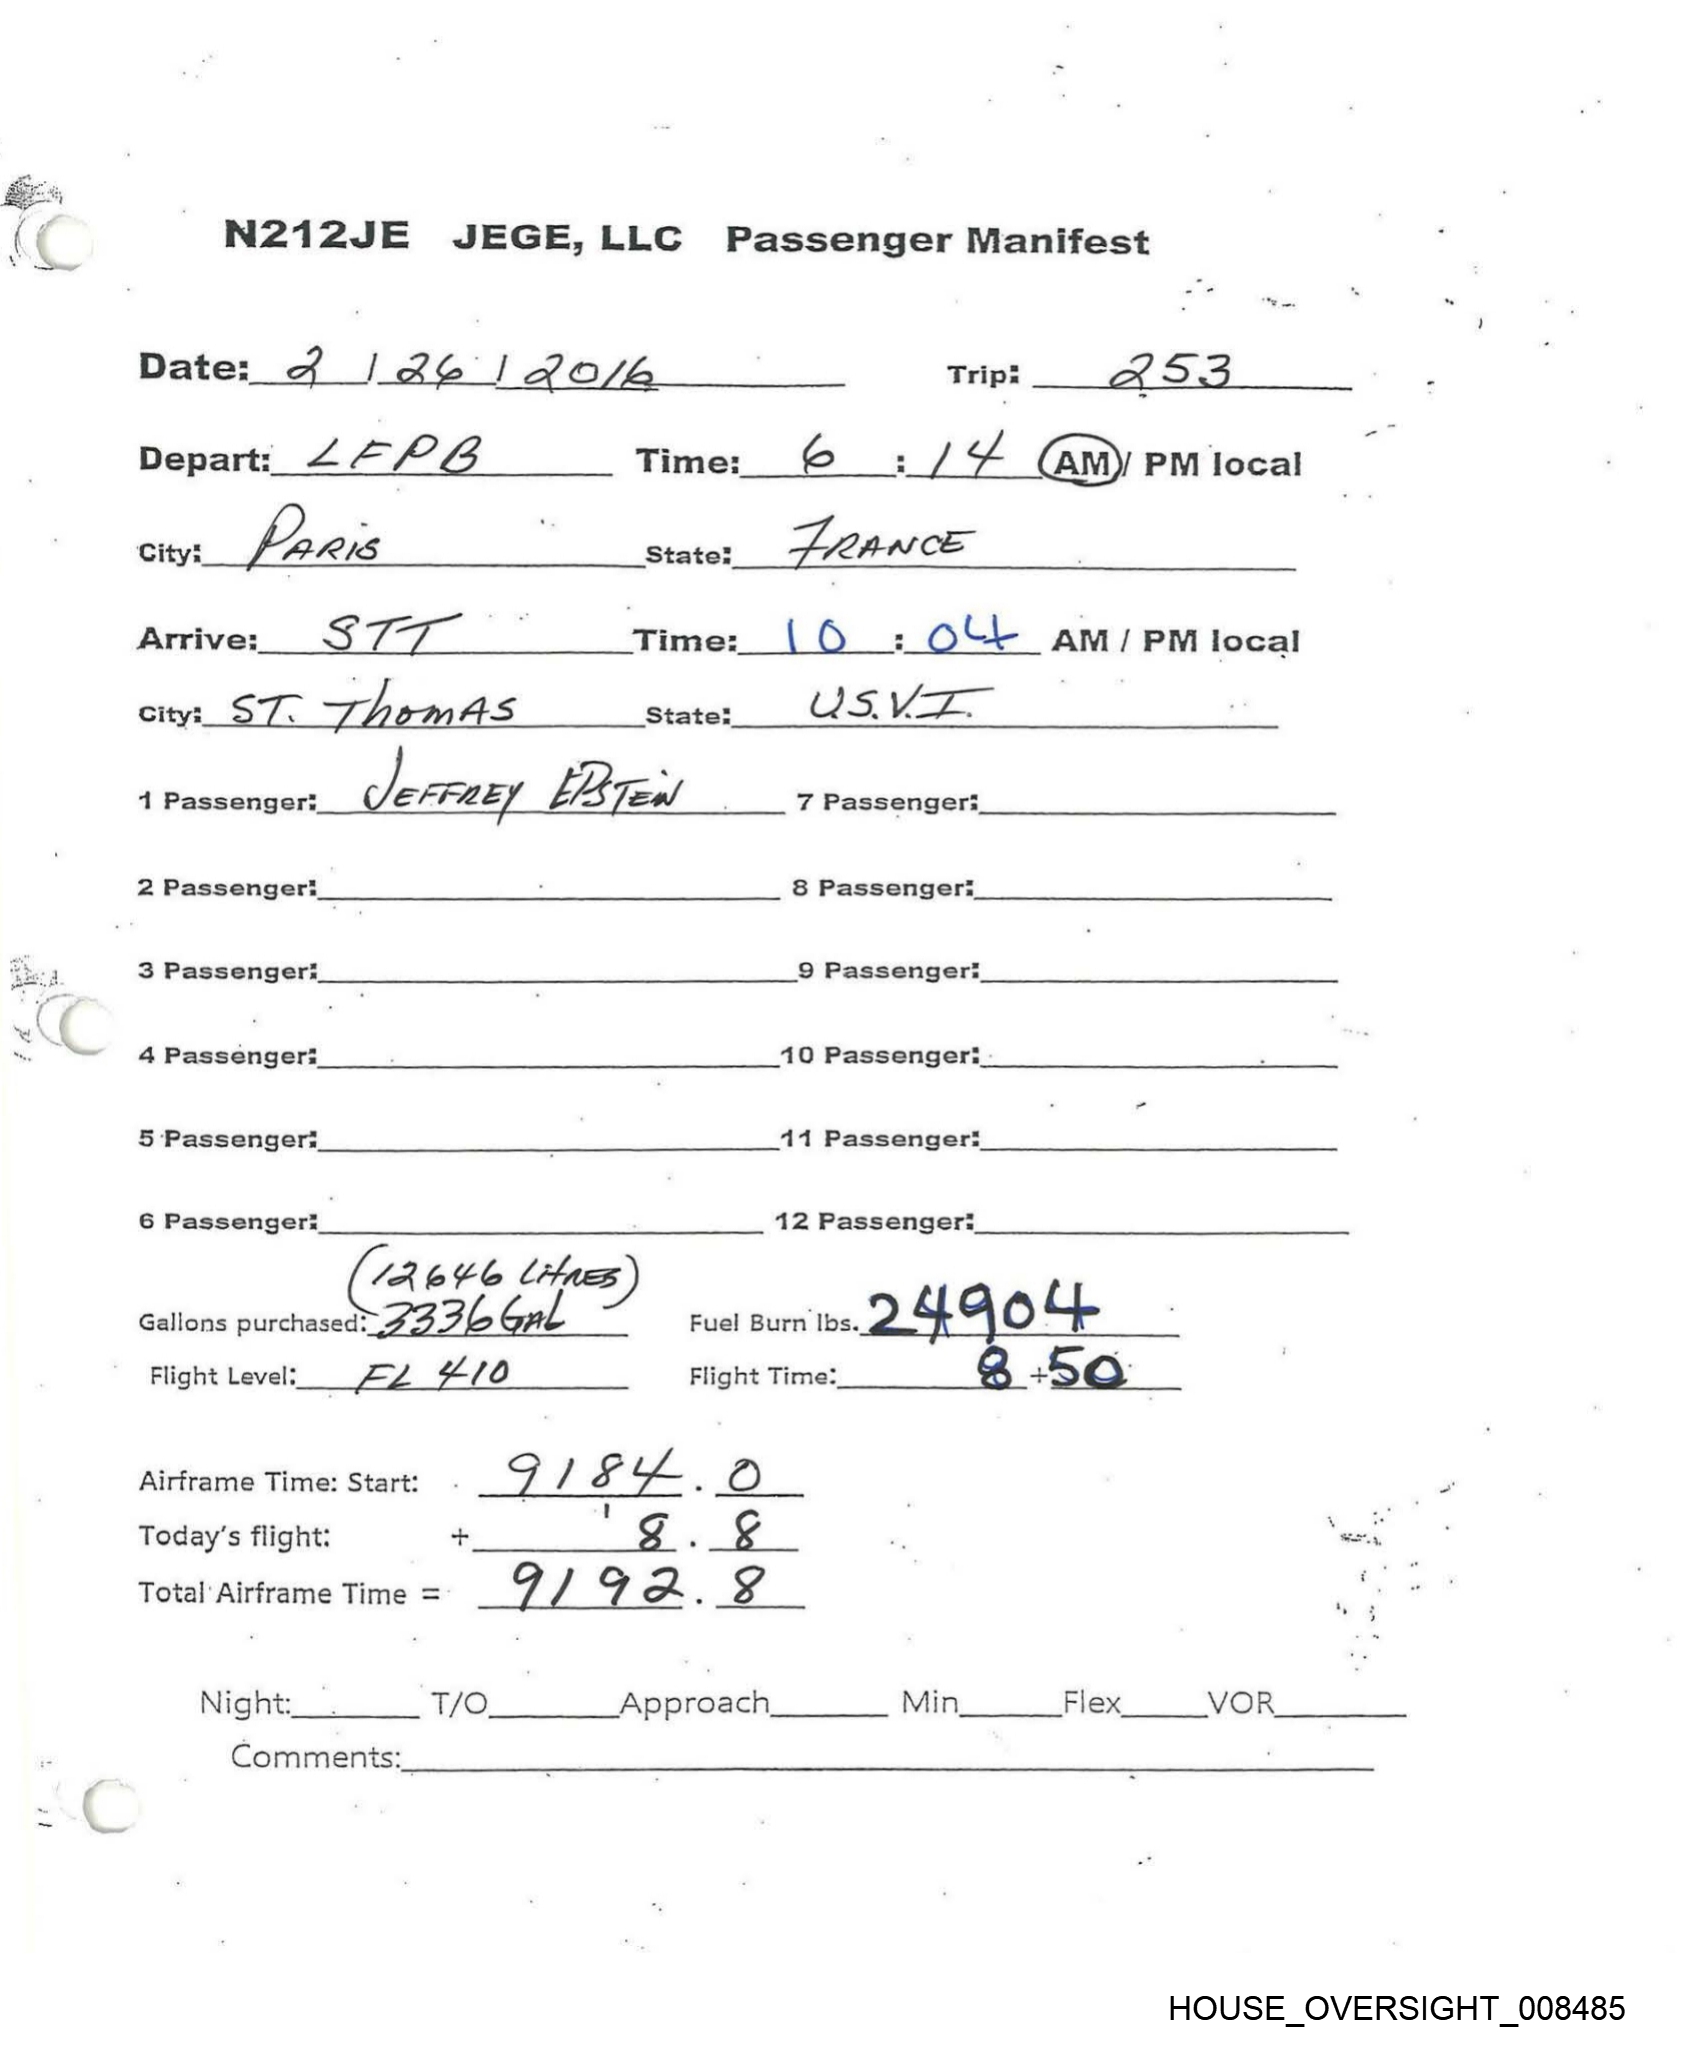 N212JE JEGE, LLC Passenger Manifest
Date: 2 / 26 / 2016 Trip: 253
Depart: LFPB Time: 6 : 14 AM / PM local
City: PARIS State: FRANCE
Arrive: STT Time: 10 : 04 AM / PM local
City: ST. ThomAS State: U.S.V.I.
1 Passenger: JEFFREY EPSTEiN 7 Passenger:
2 Passenger: 8 Passenger:
3 Passenger: 9 Passenger:
4 Passenger: 10 Passenger:
5 Passenger: 11 Passenger:
6 Passenger: 12 Passenger:
(12646 LitRES)
Gallons purchased: 3336 GAL Fuel Burn lbs. 24904
Flight Level: FL 410 Flight Time: 8 + 50
Airframe Time: Start: 9184 . 0
Today's flight: + 8 . 8
Total Airframe Time = 9192 . 8
Night: T/O Approach Min Flex VOR
Comments:
HOUSE_OVERSIGHT_008485